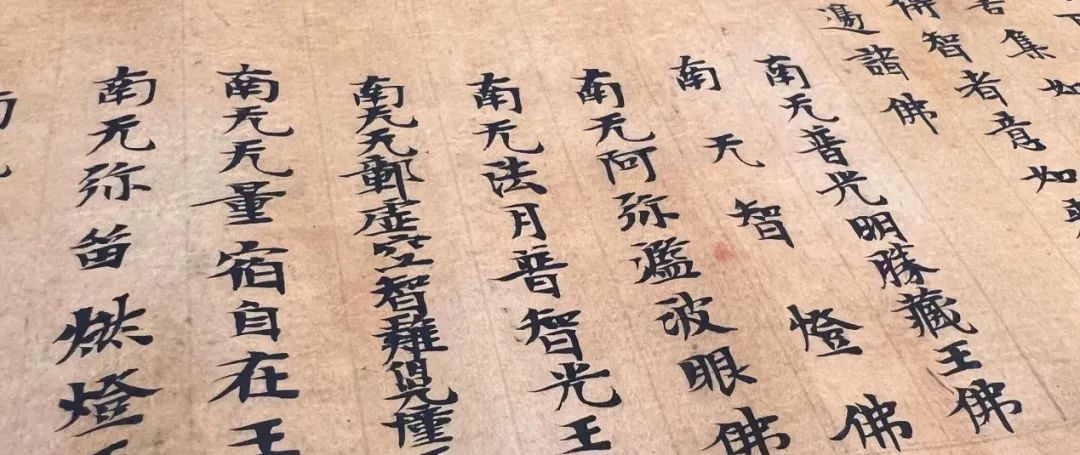 集如
佛智者意如
邊諸佛
南无普光明勝藏王佛
南无智燈佛
南无阿弥濫波眼佛
南无法月普智光王
南无无鄣虚空智難見幢
南无无量宿自在王
南无弥留烘燈